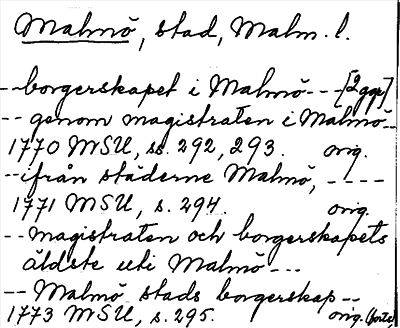 Malmö, stad, Malm. l.
--borgerskapet i Malmö---[2 ggr]
--genom magistraten i Malmö--
1770 MSU, ss. 292, 293. orig.
--ifrån städerne Malmö, ----
1771 MSU, s. 294. orig.
--magistraten och borgerskapets
äldste uti Malmö---
--Malmö stads borgerskap--
1773 MSU, s. 295. orig.